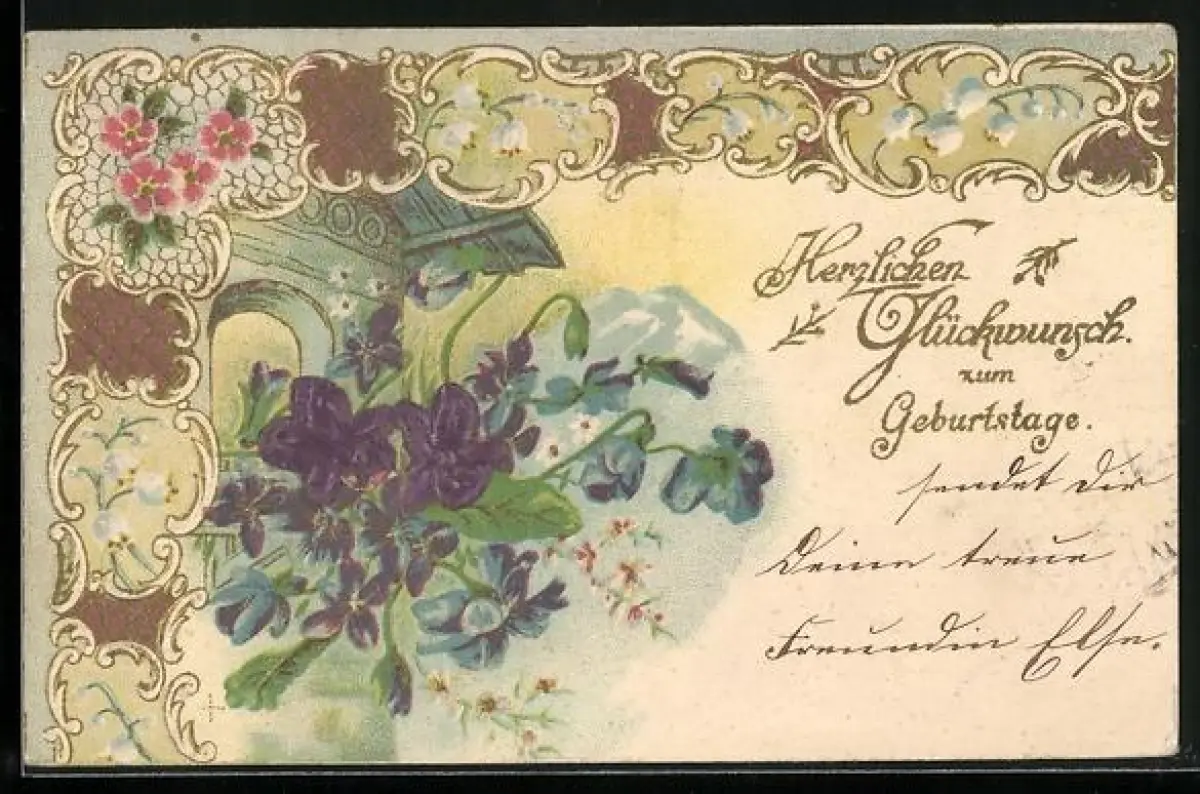 Herzlichen
Glückwunsch.
zum
Geburtstage.
sendet Dir
Deine treue
Freundin Else.